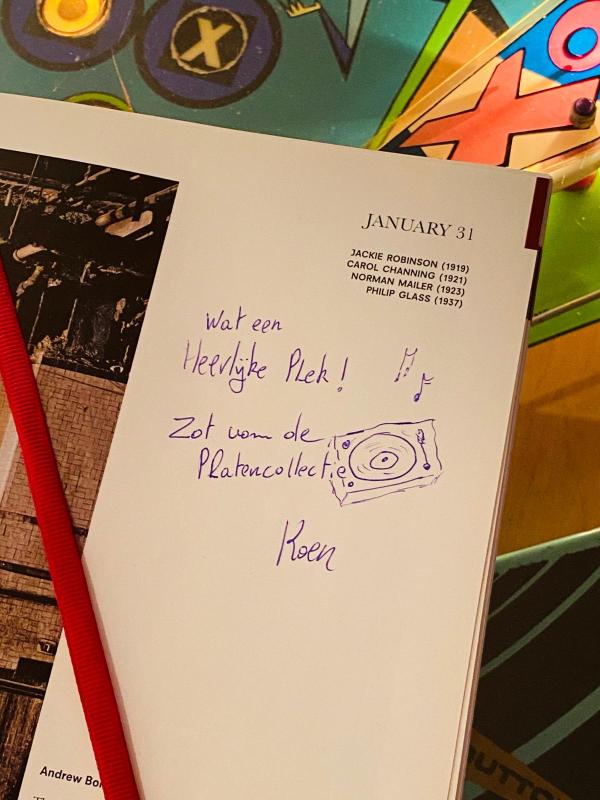 X
X
JANUARY 31
JACKIE ROBINSON (1919)
CAROL CHANNING (1921)
NORMAN MAILER (1923)
PHILIP GLASS (1937)
Wat een
Heerlijke Plek!
Zot van de
Platencollectie
Koen
Andrew